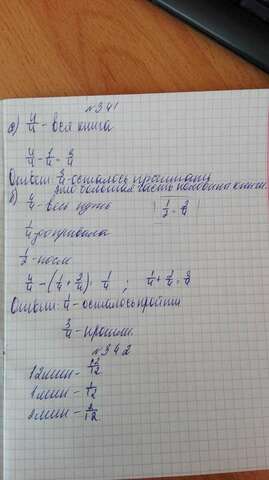 №341
а) 4/4 - вся книга
4/4 - 1/4 = 3/4
Ответ: 3/4 осталось прочитать
это большая часть половина книги.
б) 4/4 - весь путь | 1/2 = 2/4 |
1/4 - до привала
1/2 - после
4/4 - (1/4 + 2/4) = 1/4 ; 1/4 + 2/4 = 3/4
Ответ: 1/4 - осталось пройти
3/4 - прошли.
№342
12 мин - 12/12
1 мин - 1/12
2 мин - 2/12